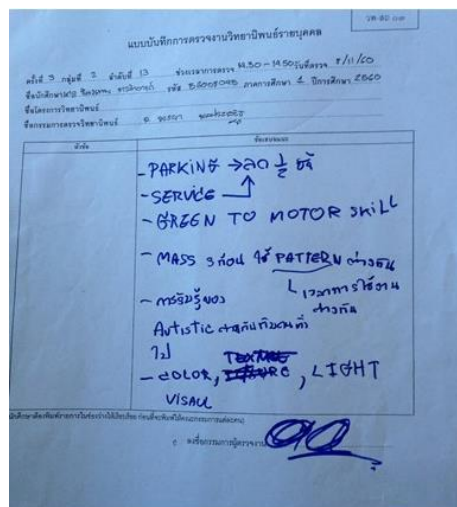 วพ-สถ ๐๓
แบบบันทึกการตรวจงานวิทยานิพนธ์รายบุคคล
ครั้งที่ 3 กลุ่มที่ 2 ลำดับที่ 13 ช่วงเวลาการตรวจ 14.30 - 14.50 วันที่ตรวจ 8/11/60
ชื่อนักศึกษา รหัส ภาคการศึกษา 1 ปีการศึกษา 2560
ชื่อโครงการวิทยานิพนธ์
ชื่อกรรมการตรวจวิทยานิพนธ์ อ.
หัวข้อ ข้อเสนอแนะ
- PARKING → ลด 1/2
- SERVICE
- GREEN TO MOTOR SKILL
- MASS 3 ก้อน ใช้ PATTERN ต่างกัน
เวลาการใช้งาน
ต่างกัน
- การรับรู้ของ
Autistic ต่างกับกับคนทั่ว
ไป
- COLOR, TEXTURE, LIGHT
VISAUL
ลงชื่อกรรมการผู้ตรวจงาน